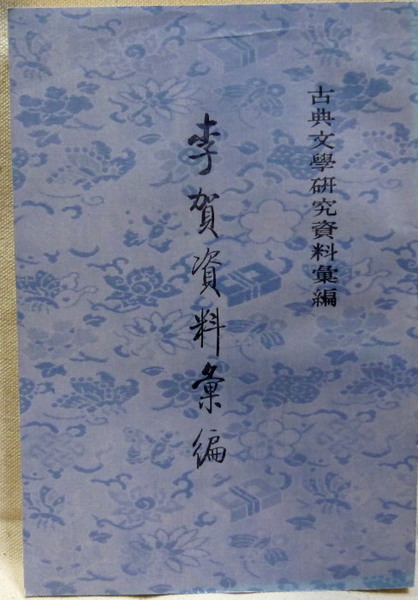 古典文學研究資料彙編
李賀資料彙編